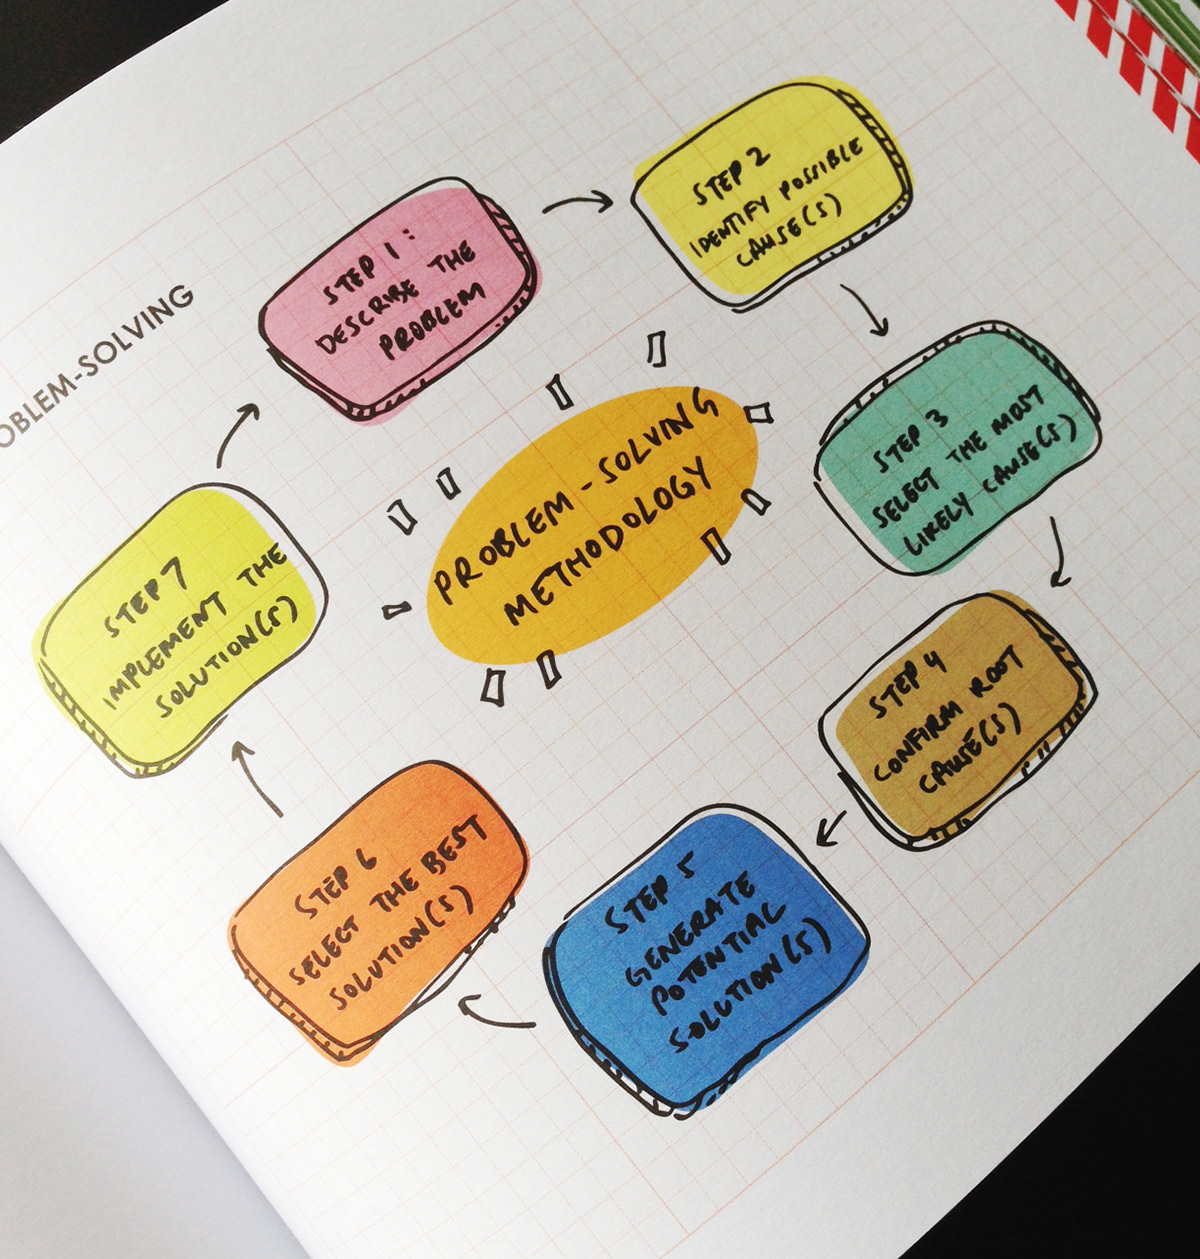 OBLEM-SOLVING
STEP 1:
DESCRIBE THE
PROBLEM
STEP 2
IDENTIFY POSSIBLE
CAUSE(S)
STEP 3
SELECT THE MOST
LIKELY CAUSE(S)
STEP 4
CONFIRM ROOT
CAUSE(S)
STEP 5
GENERATE
POTENTIAL
SOLUTION(S)
STEP 6
SELECT THE BEST
SOLUTION(S)
STEP 7
IMPLEMENT THE
SOLUTION(S)
PROBLEM-SOLVING
METHODOLOGY